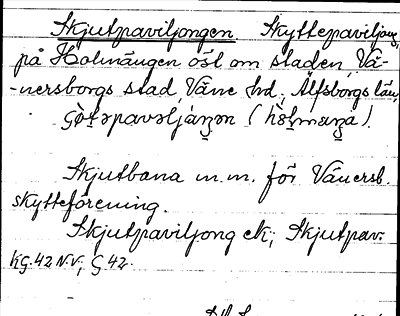 Skjutpaviljongen. Skyttepaviljong
på Holmängen öst om staden, Vä-
-nersborgs stad, Väne hd, Älfsborgs län,
Skjutbana m.m. för Vänersb.
skytteförening.
Skjutpaviljong ek; Skjutpav:
KG.42 NV; G 42.